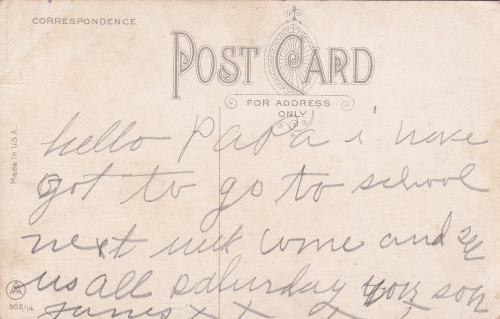 CORRESPONDENCE
POST CARD
FOR ADDRESS
ONLY
Made in U.S.A.
hello PaPa i have
got to go to school
next week come and se
us all saturday your son
James x x x x
A
552/14